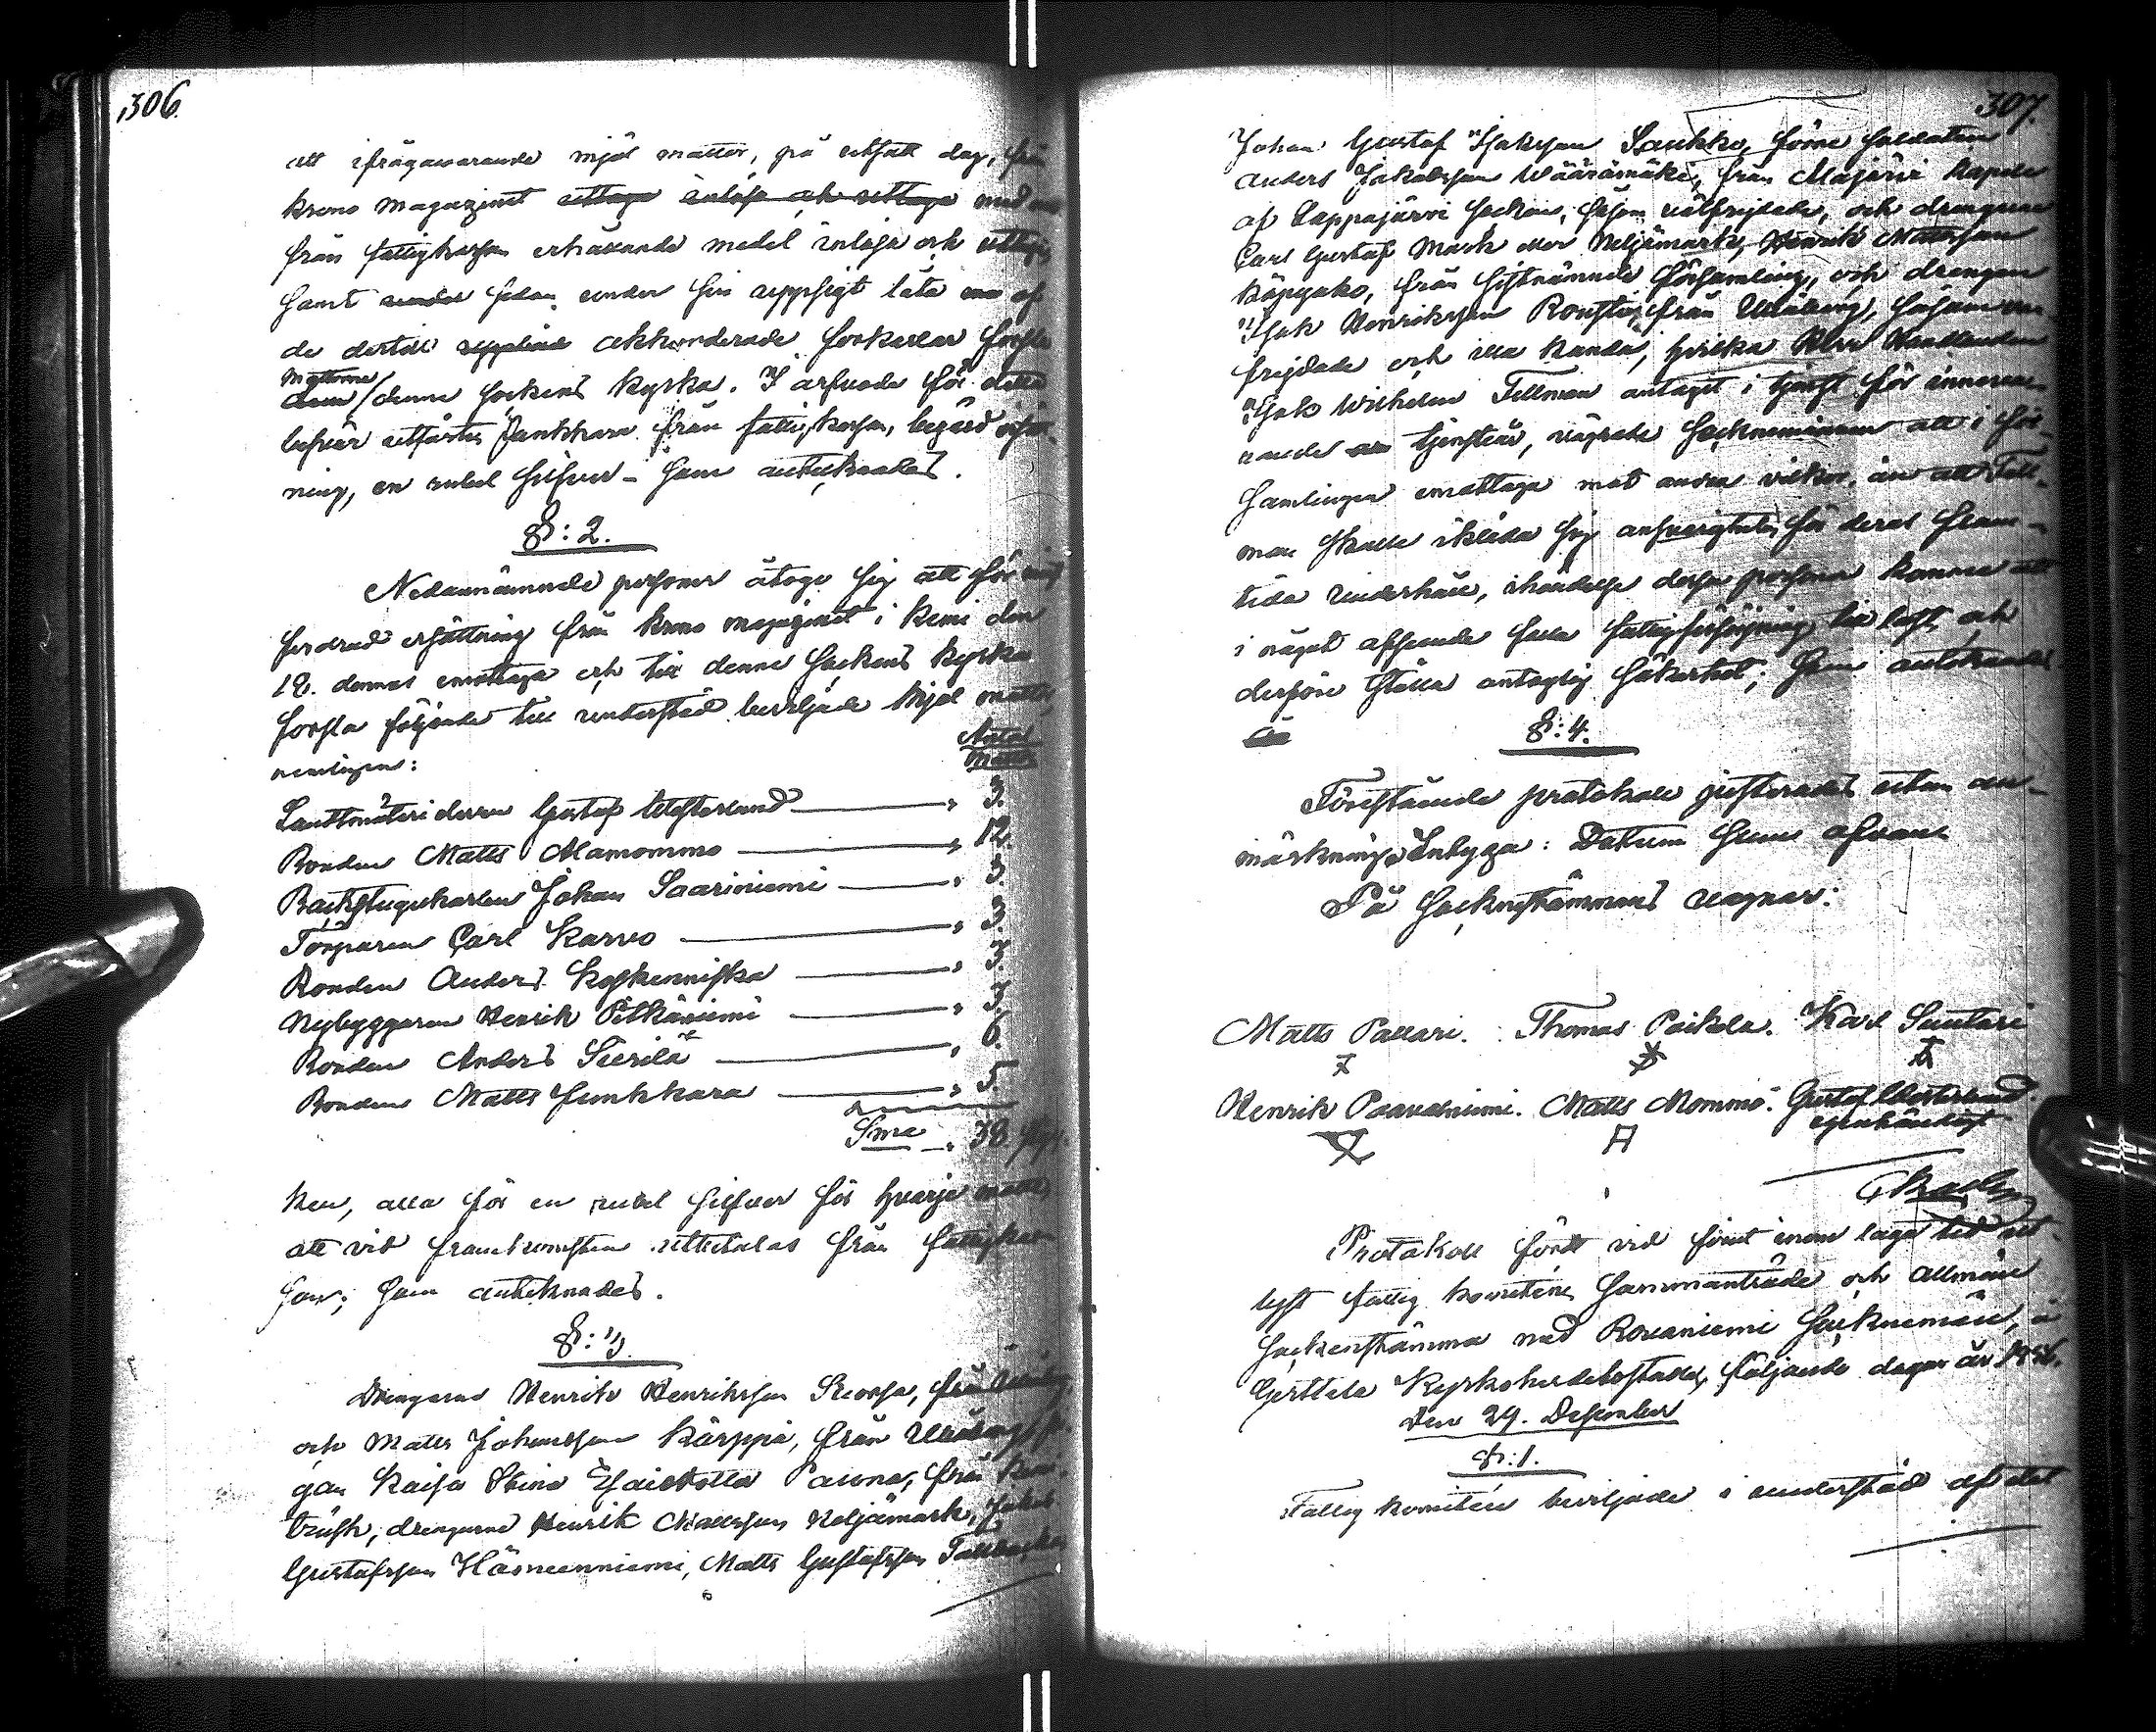 306.
att ifrågavarande mjöl mattor, på utsatt dag, från
krono magazinet uttaga inlösa och uttaga med
från fattigkassan erhållande medel inlösa och uttaga,
samt sedan under sin uppsigt låta af
de dertill ackkorderade forkarlar forsla
mattorne
dem / denne sockens kyrka. I arfvode för detta
besvär utfästes Junkkara från fattigkassan, begärd
ning, en rubel silfver – som antecknades.
§: 2.
Nedannämnde personer åtogo sig att för
fordrad ersättning från krono magazinet i Kemi den
18. dennes emottaga och till denne sockens kyrka
forsla följande till understöd beviljade mjöl mattor
nemligen:
Antal
Mattor
Landtmäteri dräng Gustaf Westerlund " 3.
Bonden Matts Alamommo " 12.
Backstugukarlen Johan Saariniemi " 3.
Torparen Carl Karvo " 3.
Bonden Anders Koskenniska " 3.
Nybyggaren Henrik Pitkäniemi " 3.
Bonden Anders Sierilä " 6.
Bonden Matts Junkkara " 5.
Sma " 38
ken, alla för en rubel silfver för hvarje matta,
att vid framkomsten utbetalas från fattigkas-
san; som antecknades.
§: 3.
Drengarne Henrik Henriksson from
och Matts Johansson Kärppä, från Uleåborg,
gan Kaisa Stina Esaidotter Pauna, från Kemi
träsk, drengarne Henrik Mattsson Neljämark, Jakob
Gustafsson Häsneenniemi, Matts Gustafsson Tallbacka
307.
Johan Gustaf Isaksson Saukko, förre soldaten
Anders Jakobsson Wääränmäki, från Alajärvi kapell
af Lappajärvi socken, såsom välfrejdade, och drengarne
Carl Gustaf Mark eller Neljämark, Henrik Mattsson
Käpyaho, från sistnämnde församling, och drengen
Isak Henriksson från Uleåborg, såsom van-
frejdade och illa kända, hvilka Handlanden
Isak Wilhelm Tellman antagit i tjenst för inneva-
rande tjensteår, vägrade socknemännen att i för-
samlingen emottaga mot andra vilkor, än att Tell-
man skulle ikläda sig ansvarighet för deras fram-
tida underhåll, ihändelse dessa personer komma att
i något afseende falla fattigförsörjning till last, och
derföre ställa antaglig säkerhet; som antecknades
§: 4.
Förestående protokoll justerades utan an-
märkning, Intyga: Datum som ofvan
På sockenstämmans vägnar:
Matts Pallari. Thomas Poikela. Karl Suutari
Henrik Paavalniemi. Matts Mommo. Gustaf Westerlund.
egenhändigt
Protokoll fördt vid förut inom laga tid ut-
lyst fattig komiténs sammanträde och allmän
sockenstämma med Rovaniemi socknemän, i
Gerttula Kyrkoherdebostället, följande dagar år 1856.
Den 29. December
§: 1.
Fattig komitén beviljade i understöd åt